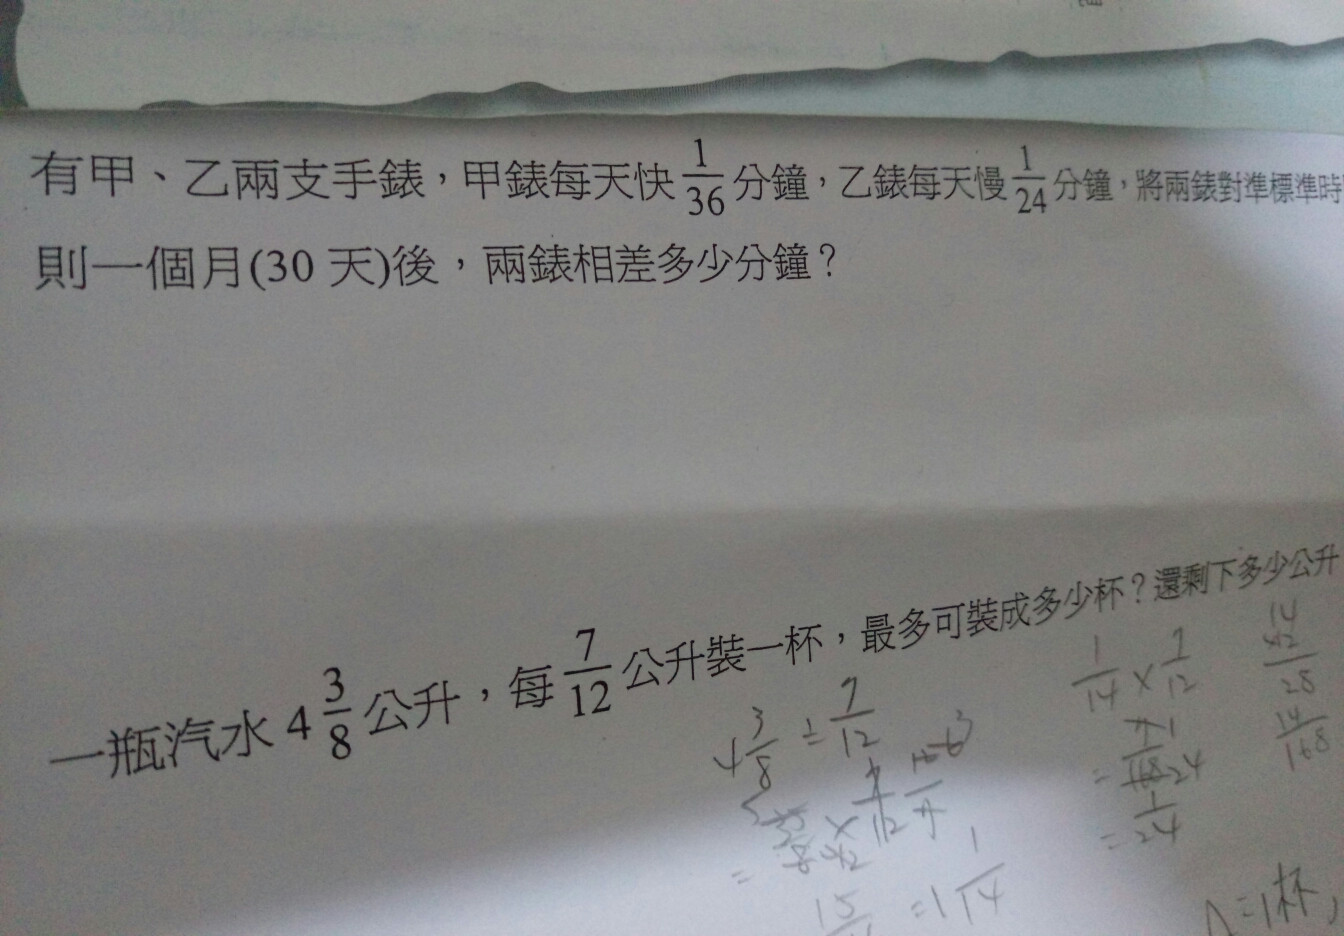 有甲、乙兩支手錶，甲錶每天快 1/36 分鐘，乙錶每天慢 1/24 分鐘，將兩錶對準標準時
則一個月(30 天)後，兩錶相差多少分鐘？
一瓶汽水 4 3/8 公升，每 7/12 公升裝一杯，最多可裝成多少杯？還剩下多少公升
4 3/8 ÷ 7/12
= 1 1/14
1/14 × 7/12
= 1/24
14
28
14/168
A=1杯,